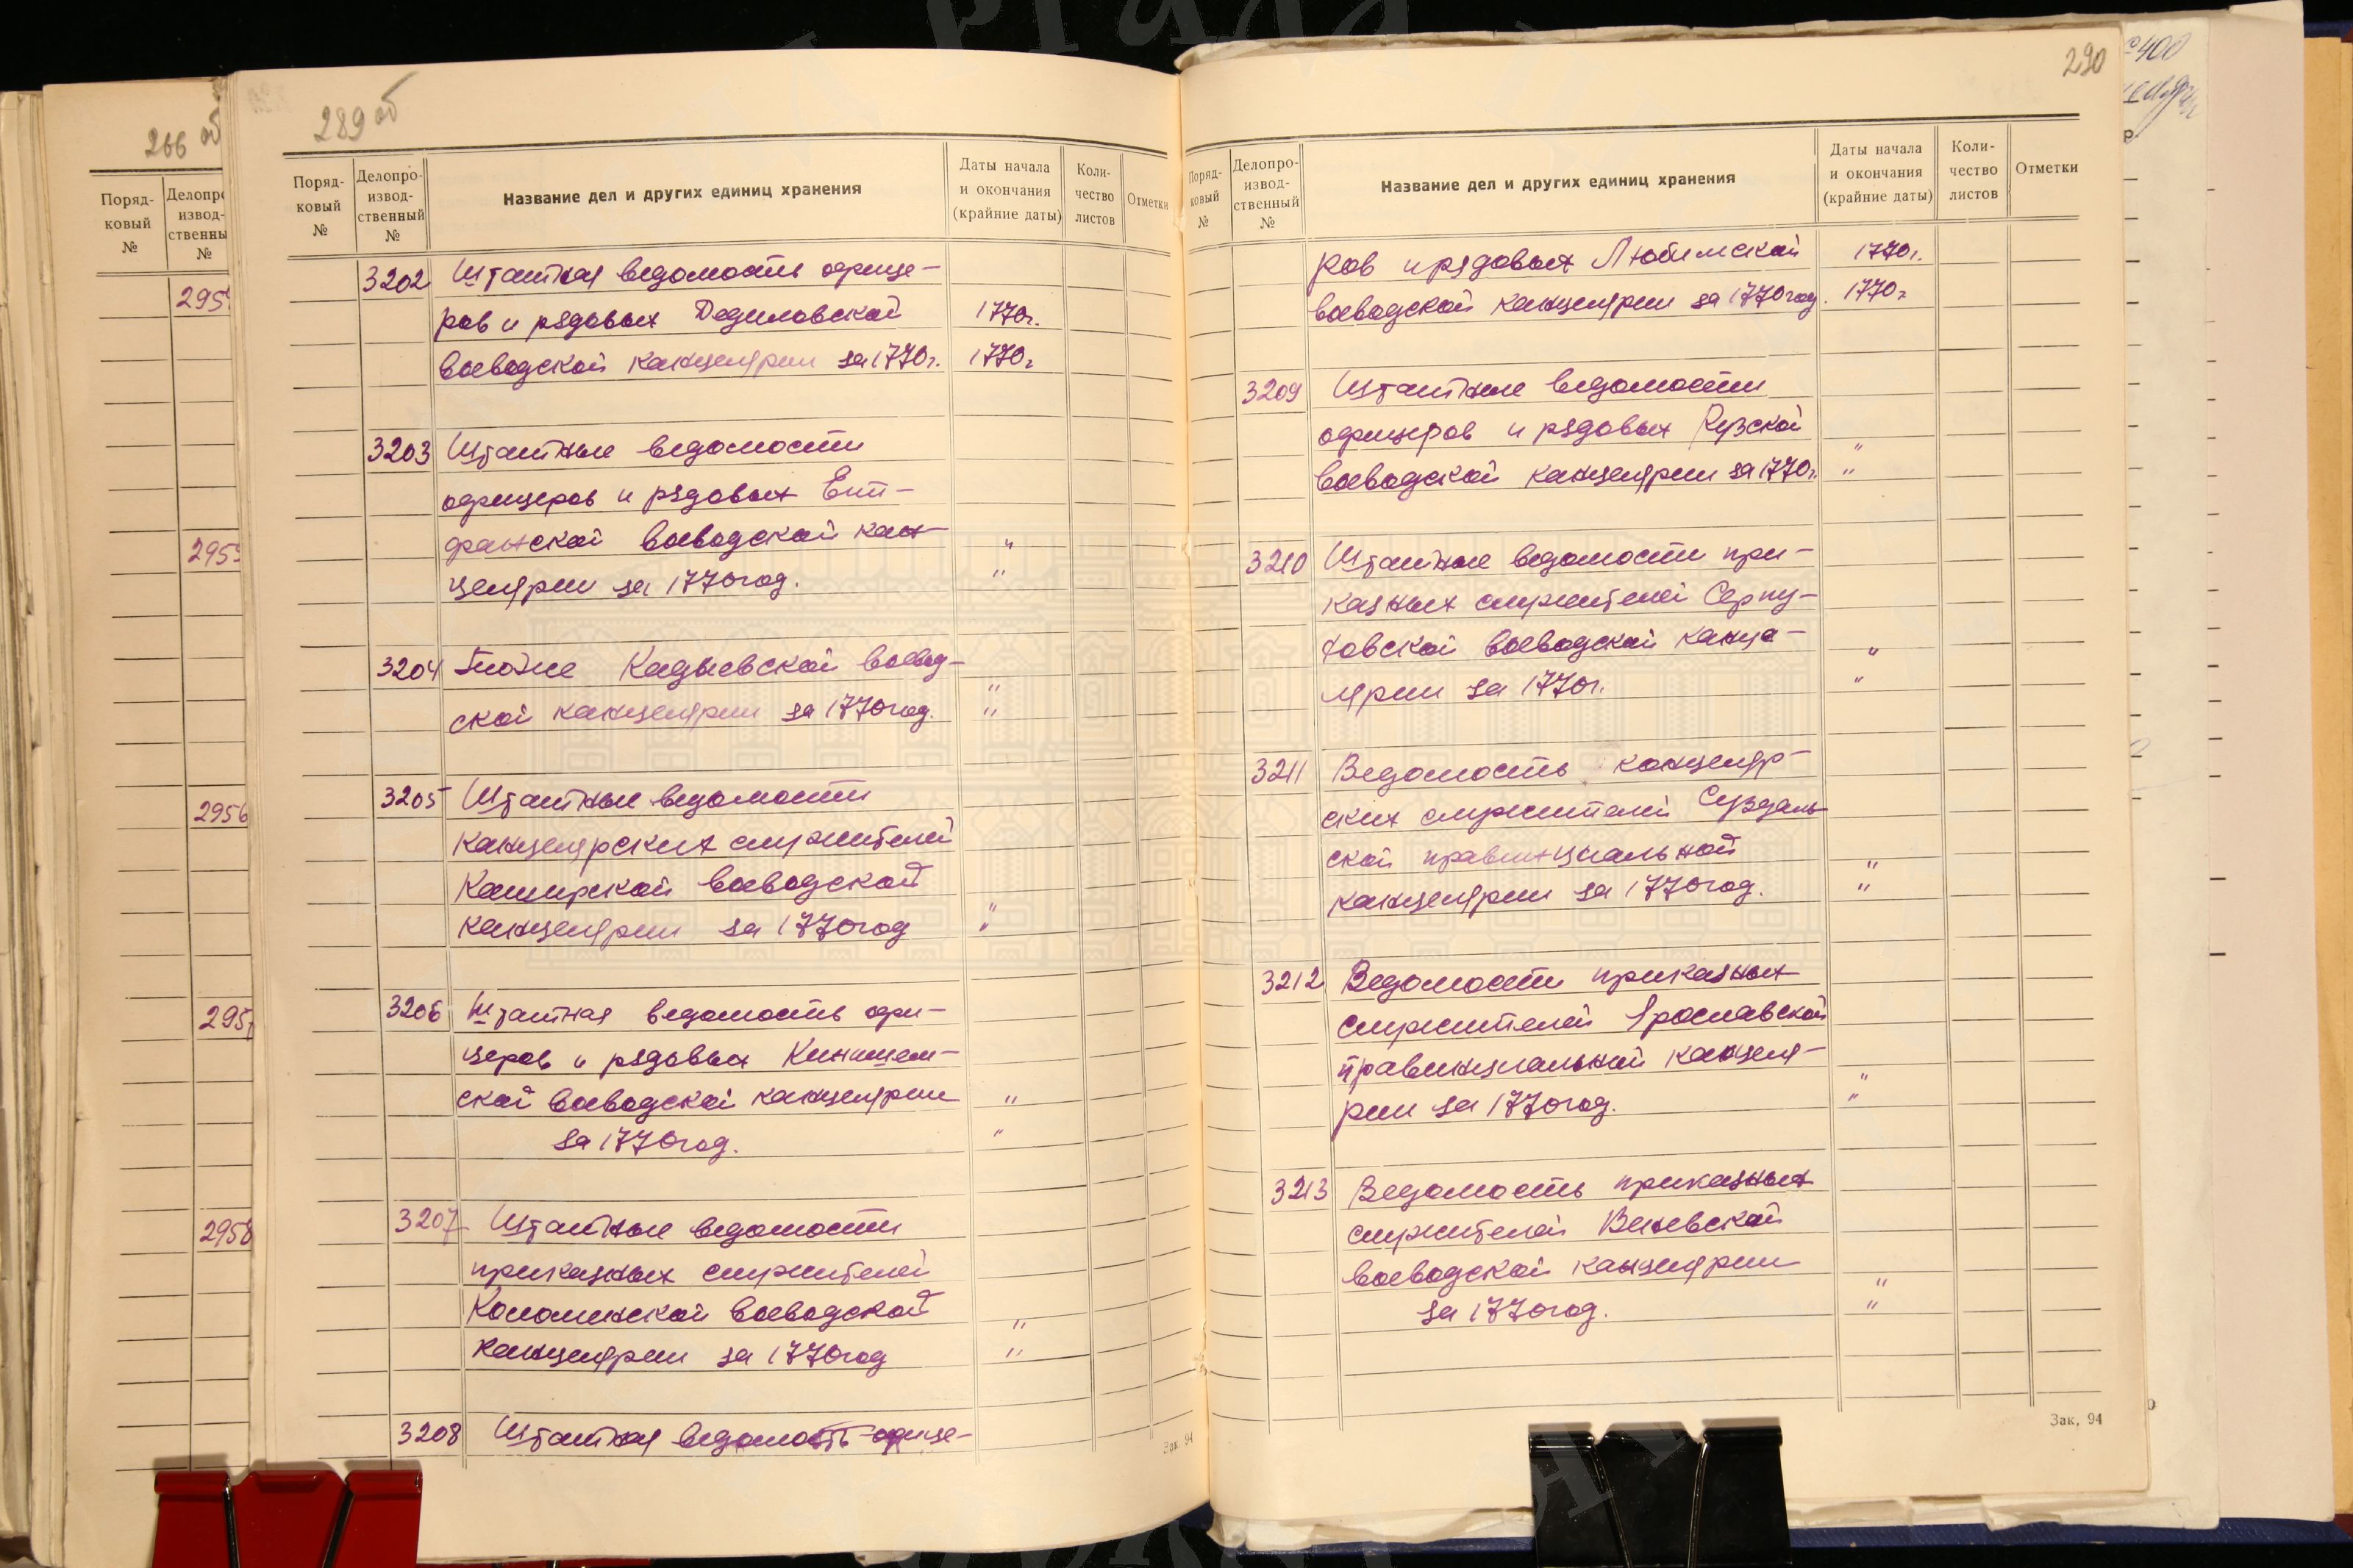 266 об
Поряд-
ковый
№
Делопро
извод-
ственны
№
295
295
2956
295
2958
289 об
Поряд-
ковый
№
Делопро-
извод-
ственный
№
Название дел и других единиц хранения
Даты начала
и окончания
(крайние даты)
Коли-
чество
листов
Отметки
3202 Штатная ведомость офице-
ров и рядовых Дедиловской 1770г.
воеводской канцелярии за 1770г. 1770г
3203 Штатные ведомости
офицеров и рядовых Епи-
фанской воеводской кан- "
целярии за 1770год. "
3204 Тоже Кадыевской воевод- "
ской канцелярии за 1770год. "
3205 Штатные ведомости
канцелярских служителей
Каширской воеводской "
канцелярии за 1770год "
3206 Штатная ведомость офи-
церов и рядовых Кинешем-
ской воеводской канцелярии "
за 1770год. "
3207 Штатные ведомости
приказных служителей
Коломенской воеводской "
канцелярии за 1770год "
3208 Штатная ведомость офице-
Зак. 94
290
Поряд-
ковый
№
Делопро-
извод-
ственный
№
Название дел и других единиц хранения
Даты начала
и окончания
(крайние даты)
Коли-
чество
листов
Отметки
ров и рядовых Любимской 1770г.
воеводской канцелярии за 1770год. 1770г
3209 Штатные ведомости
офицеров и рядовых Рузской "
воеводской канцелярии за 1770г. "
3210 Штатные ведомости при-
казных служителей Серпу-
ховской воеводской канце- "
лярии за 1770г. "
3211 Ведомость канцеляр-
ских служителей Суздаль-
ской провинциальной "
канцелярии за 1770год. "
3212 Ведомости приказных
служителей Ярославской
провинциальной канцеля- "
рии за 1770год. "
3213 Ведомость приказных
служителей Веневской
воеводской канцелярии "
за 1770год. "
Зак. 94